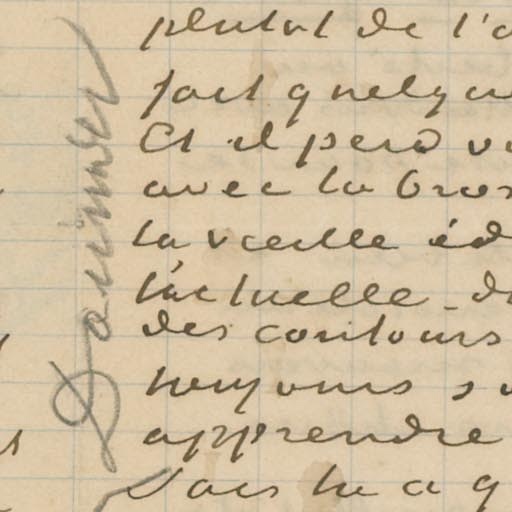 plutot de l'a
fact quelqu
Et il perd v
avec la bros
la vieille éd
l'actuelle - d
des contours
toujours s
apprendre
Vois tu a q
Daumier